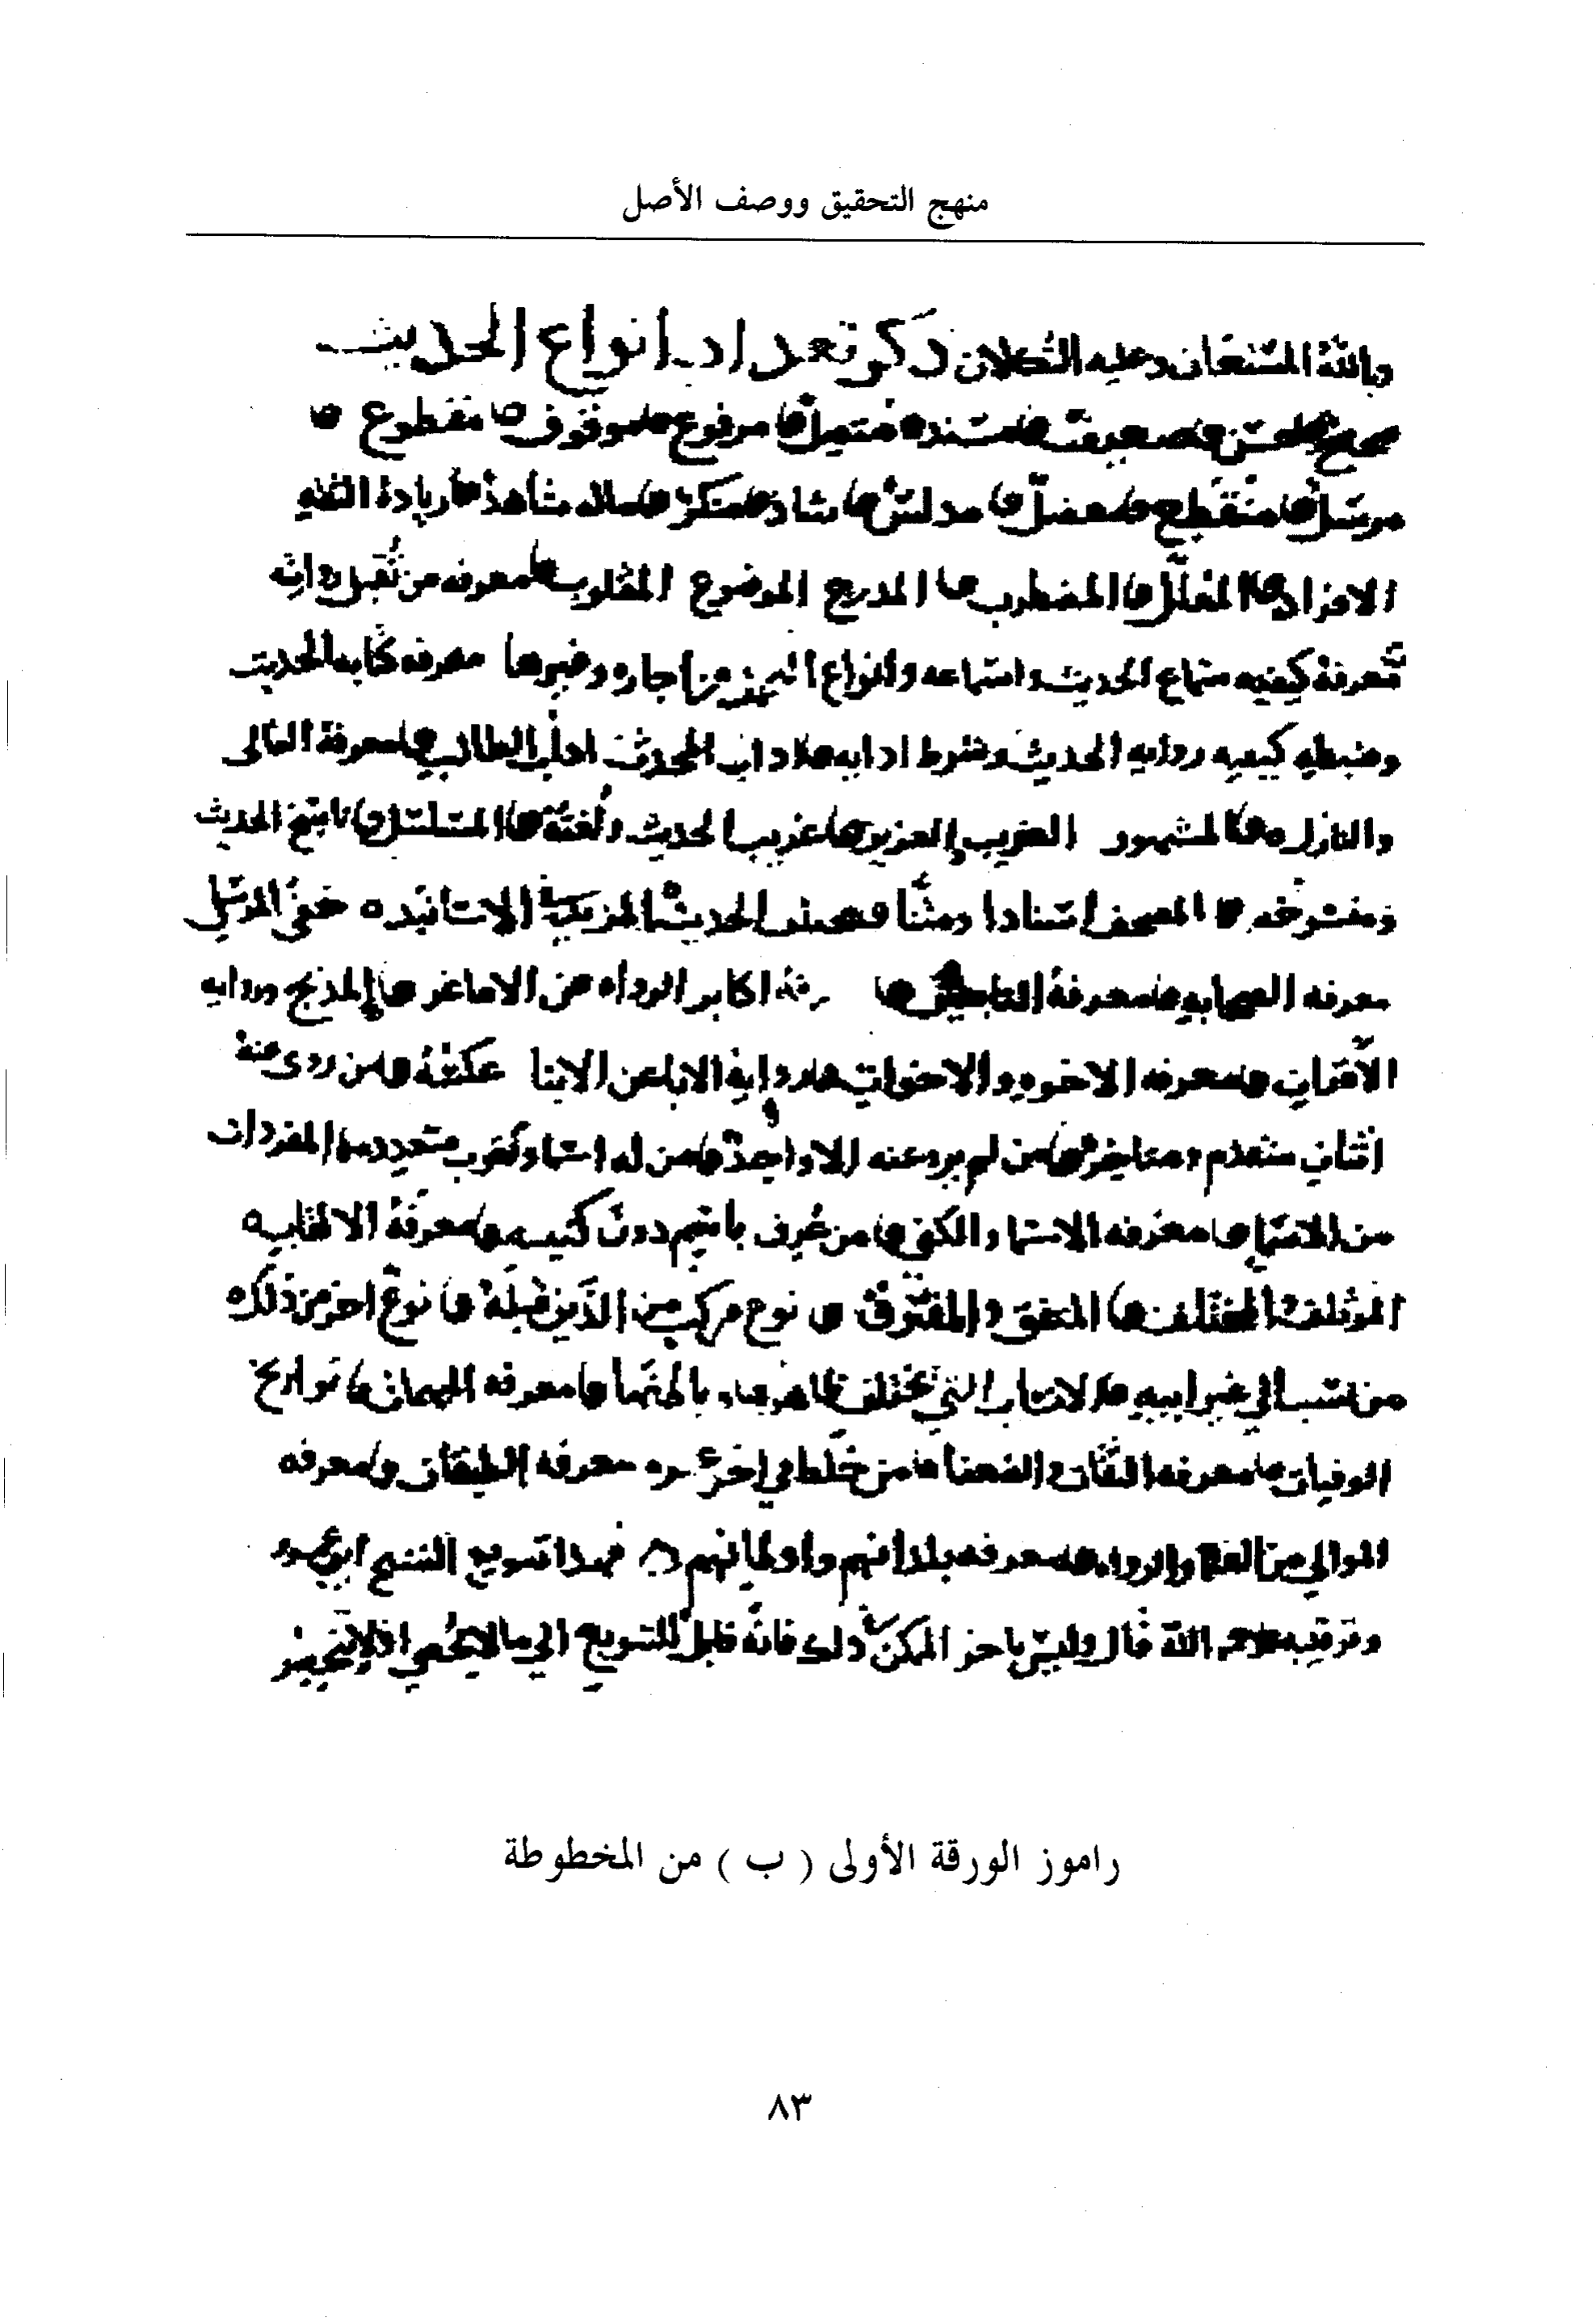 منهج التحقيق ووصف الأصل
وبالله المستعان وعليه التكلان ذكر تعداد انواع الحديث
صحيح حسن ضعيف مسند متصل مرفوع موقوف مقطوع
مرسل منقطع معضل مدلس شاذ منكر ماله شاهد زيادة الثقه
الافراد المعلل المضطرب المدرج الموضوع المقلوب معرفه من تقبل روايته
معرفة كيفيه سماع الحديث واسماعه وانواع التحمل من اجازه وغيرها معرفه كتابه الحديث
وضبطه كيفيه روايه الحديث وشرط ادايه اداب المحدث اداب الطالب معرفة العالى
والنازل المشهور الغريب والعزيز غريب الحديث ولغته المسلسل ناسخ الحديث
ومنسوخه المصحف اسنادا ومتنا مختلف الحديث المزيد في الاسانيد خفي المرسل
معرفه الصحابه معرفة التابعين معرفة اكابر الرواه عن الاصاغر المدبج وروايه
الأقران معرفه الاخوه والاخوات رواية الابا عن الابنا عكسه من روى عنه
اثنان متقدم ومتاخر من لم يرو عنه الا واحد من له اسما ونعوت متعدده المفردات
من الاسما معرفه الاسما والكنى من عُرف باسمه دون كنيته معرفة الالقاب
المؤتلف والمختلف المتفق والمفترق نوع مركب من الذين قبله نوع اخر من ذلك
من نسب الى غير ابيه الانساب التي يختلف ظاهرها وباطنها معرفه المبهمات تواريخ
الوفيات معرفه الثقات والضعفا من خلط في اخر عمره معرفه الطبقات معرفه
الموالي من العلما والرواه معرفه بلدانهم واوطانهم فهذا تنويع الشيخ ابي عمرو
وترتيبه رحمه الله قال وليس باخر الممكن في ذلك فانه قابل للتنويع الى ما لا يحصى اذ لا تنحصر
راموز الورقة الأولى ( ب ) من المخطوطة
٨٣